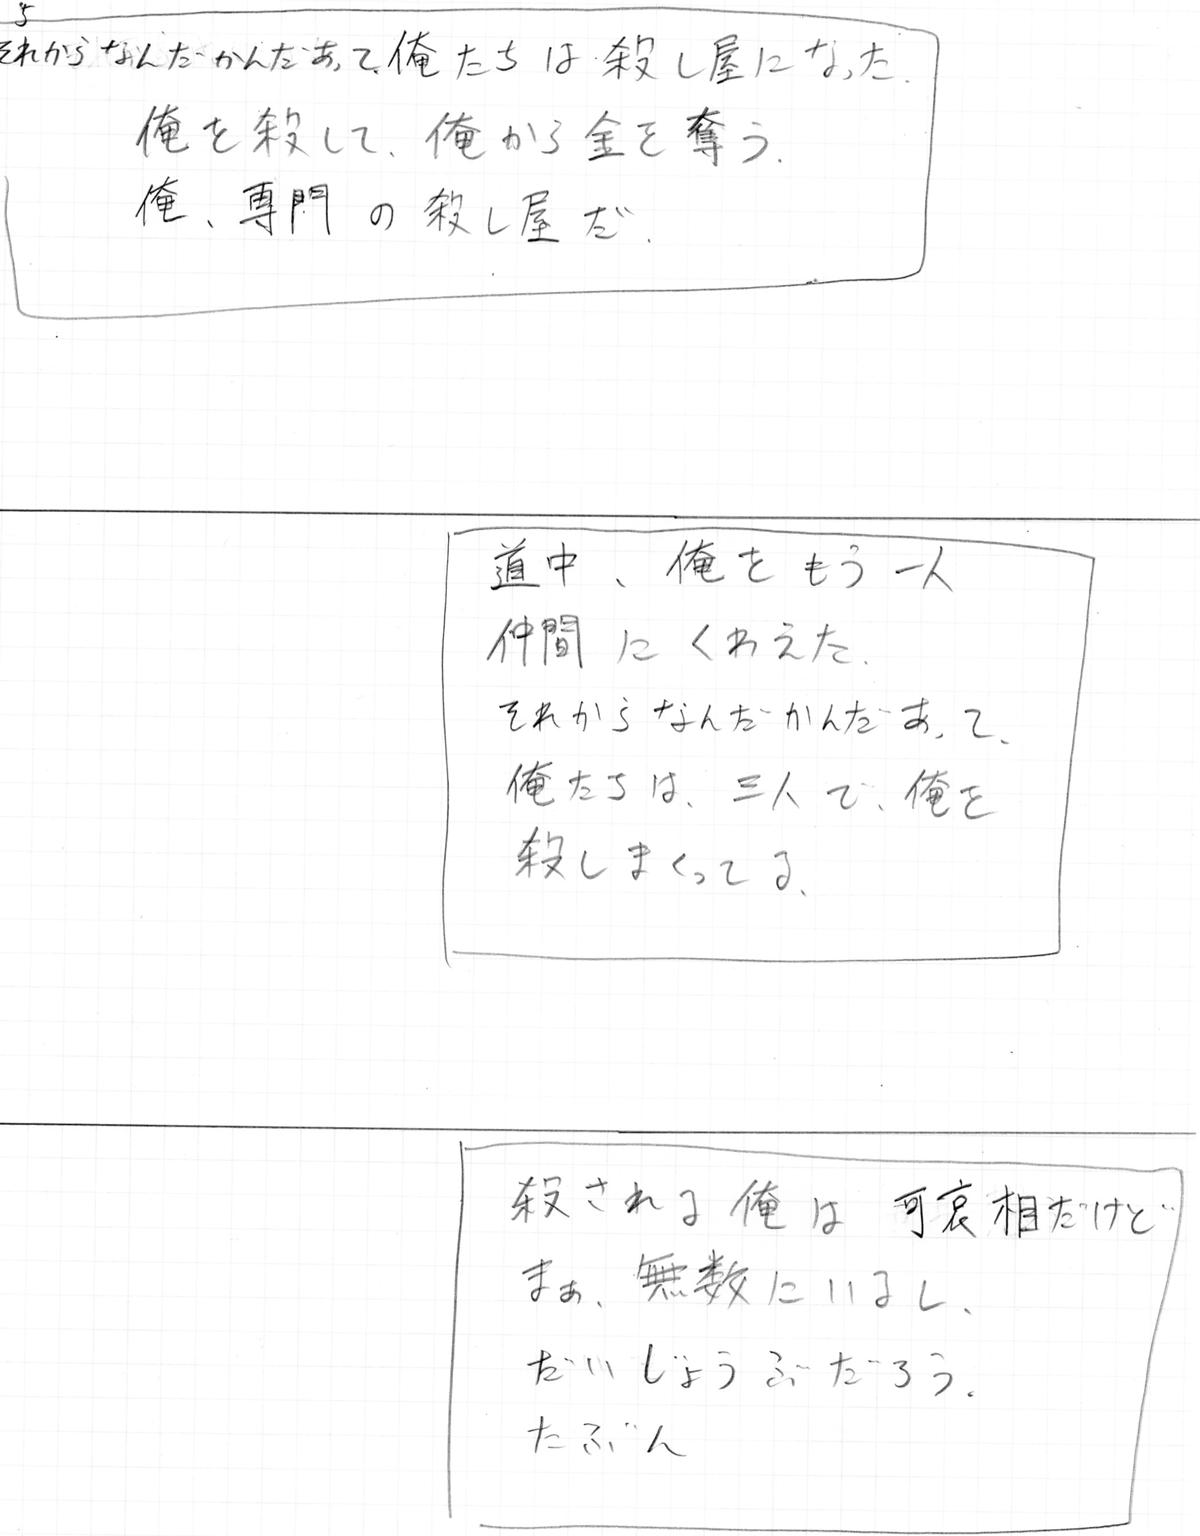 それからなんだかんだあって、俺たちは殺し屋になった.
俺を殺して、俺から金を奪う.
俺、専門の殺し屋だ.
道中、俺をもう一人
仲間にくわえた.
それからなんだかんだあって、
俺たちは、三人で、俺を
殺しまくってる、
殺される俺は可哀相だけど
まぁ、無数にいるし、
だいじょうぶだろう.
たぶん